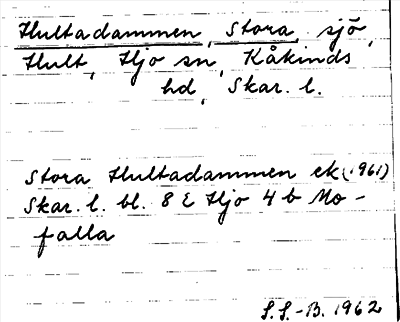 Hultadammen, Stora, sjö,
Hult, Hjo sn, Kåkinds
hd, Skar. l.
Stora Hultadammen ek (1961)
Skar. l. bl. 8 E Hjo 4 b Mo-
falla
S.S.-B. 1962